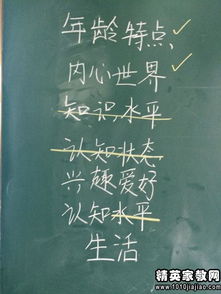 年龄特点
内心世界
知识水平
认知状态
兴趣爱好
认知水平
生活
精英家教网
www.1010jiajiao.com